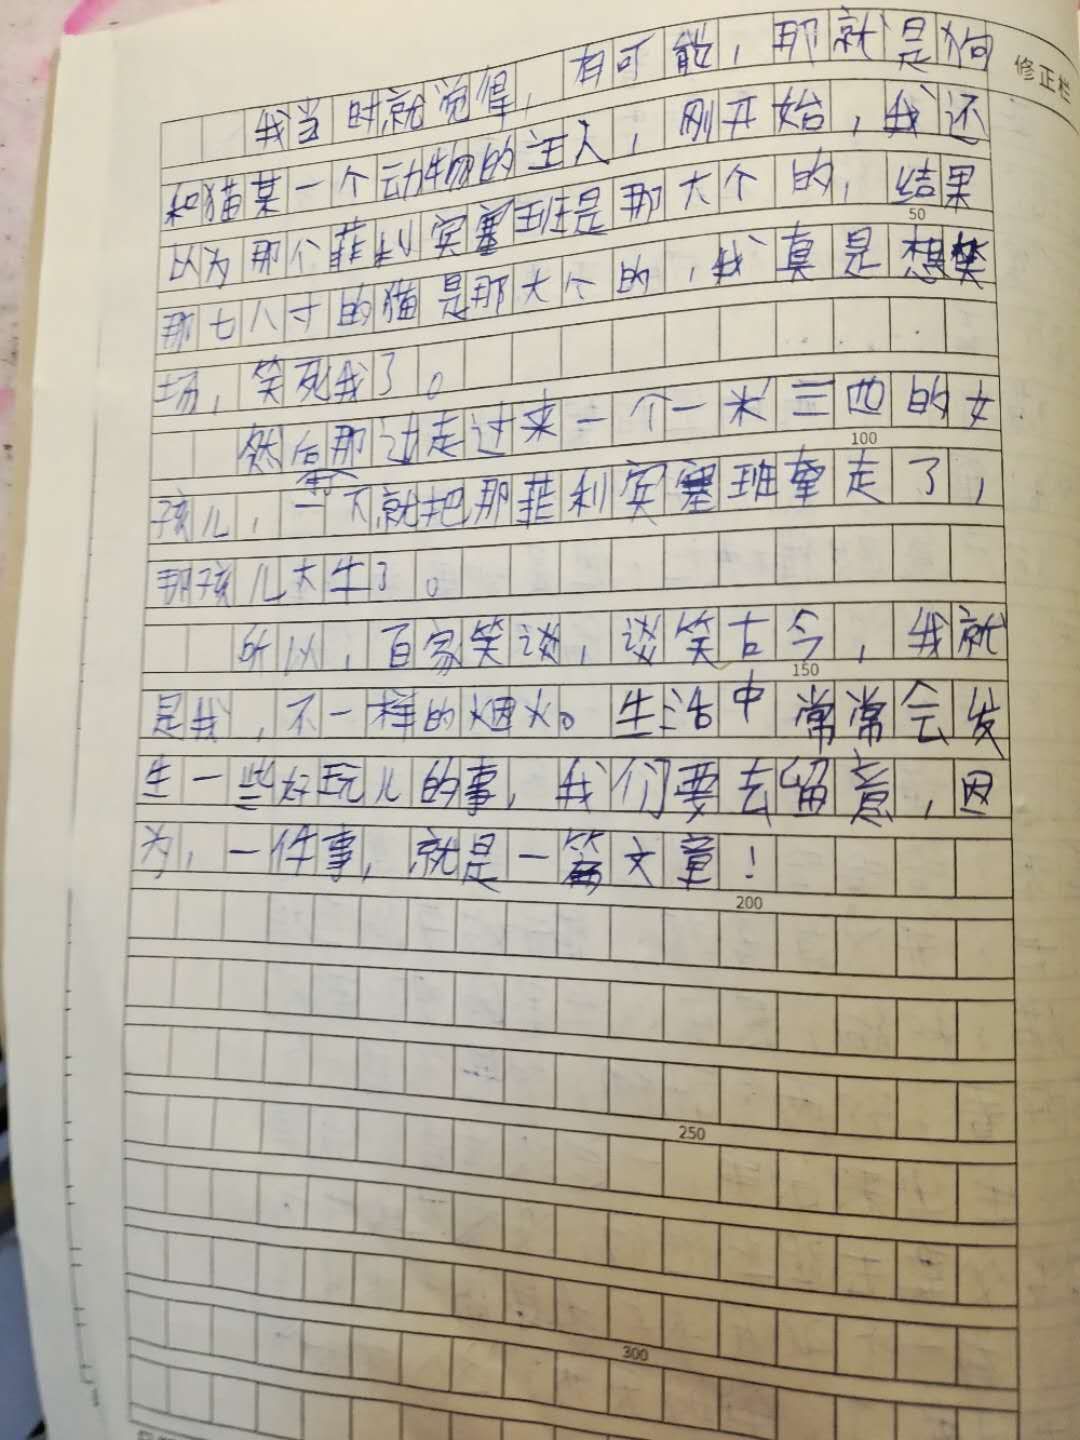 我当时就觉得，有可能，那就是狗
修正栏
和猫某一个动物的主人，刚开始，我还
以为那个菲利宾塞班是那大个的，结果
50
那七八寸的猫是那大个的，我真是想焚
场，笑死我了。
然后那边走过来一个一米三四的女
100
孩儿，一下就把那菲利宾塞班牵走了，
那孩儿太牛了。
所以，百家笑谈，谈笑古今，我就
150
是我，不一样的烟火。生活中常常会发
生一些好玩儿的事，我们要去留意，因
为，一件事，就是一篇文章！
200
250
300